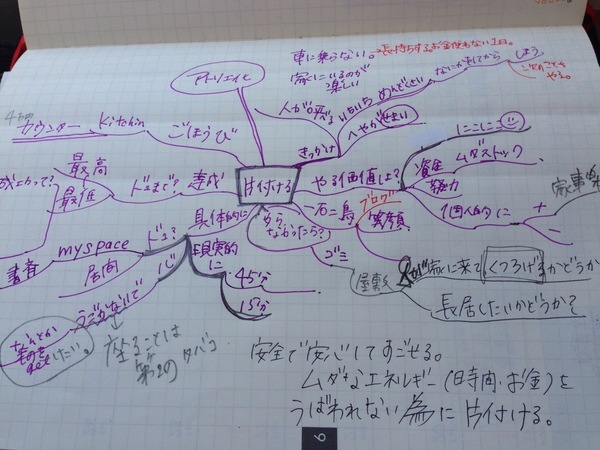 車に乗らない。→長持ちするお金使わない1日。
家にいるのが
楽しい
アトリエ化
人が呼べる
いちいち めんどくさい
なにかあれてから
しよう
きっかけ
へやがせまい
4万円
カウンター Kitchin ごほうび
にこにこ
資産 ムダストック
労力
個人的に + −
やる価値しは?
片付ける
達成 ドコまで? 最高
最低
書斎 myspace ドコ?
居間
具体的に
現実的に
45分
15分
もし
なかったら?
一石二鳥
ブログ
笑顔
ゴミ
家に来てくつろげるかどうか
長居したいかどうか?
うごかないで
座ることは
第2のタバコ
なんとか
getしたい。
安全で安心してすごせる。
ムダなエネルギー(時間・お金)を
うばわれない為に片付ける。
6